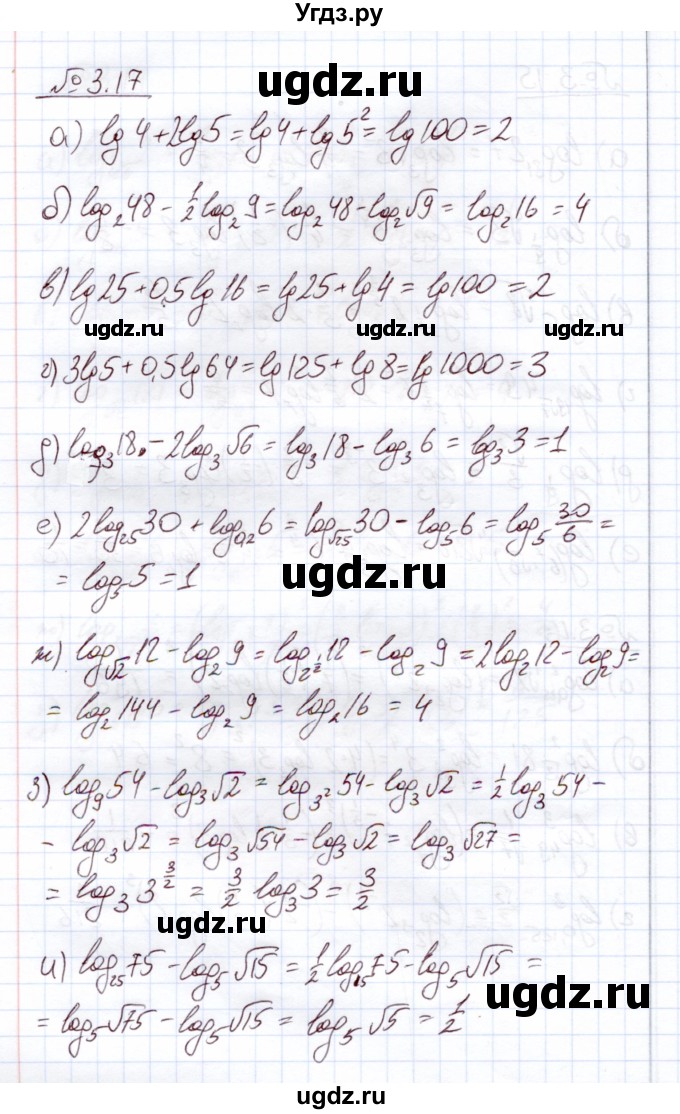 Угдз.ру
№ 3.17
ugdz.ru
а) lg 4 + 2lg 5 = lg 4 + lg 5² = lg 100 = 2
б) log₂ 48 - ½ log₂ 9 = log₂ 48 - log₂ √9 = log₂ 16 = 4
в) lg 25 + 0,5 lg 16 = lg 25 + lg 4 = lg 100 = 2
ugdz.ru ugdz.ru ugdz.ru
г) 3lg 5 + 0,5 lg 64 = lg 125 + lg 8 = lg 1000 = 3
д) log₃ 18 - 2log₃ √6 = log₃ 18 - log₃ 6 = log₃ 3 = 1
е) 2log₂₅ 30 + log₀,₂ 6 = log_√25 30 - log₅ 6 = log₅ 30/6 =
= log₅ 5 = 1
ugdz.ru
ж) log_√2 12 - log₂ 9 = log_2^½ 12 - log₂ 9 = 2log₂ 12 - log₂ 9 =
= log₂ 144 - log₂ 9 = log₂ 16 = 4
з) log₉ 54 - log₃ √2 = log_3² 54 - log₃ √2 = ½ log₃ 54 -
- log₃ √2 = log₃ √54 - log₃ √2 = log₃ √27 =
= log₃ 3^3/2 = 3/2 log₃ 3 = 3/2
ugdz.ru
и) log₂₅ 75 - log₅ √15 = ½ log₅ 75 - log₅ √15 =
ugdz.ru
= log₅ √75 - log₅ √15 = log₅ √5 = ½
ugdz.ru
ugdz.ru